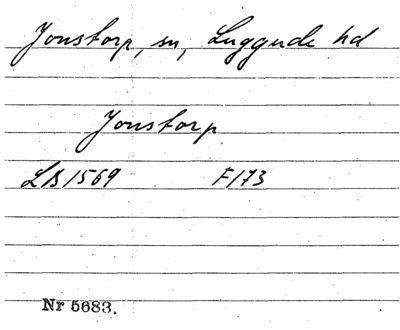 Jonstorp, sn, Luggude hd
Jonstorp
LB 1569 F173
Nr 5683.